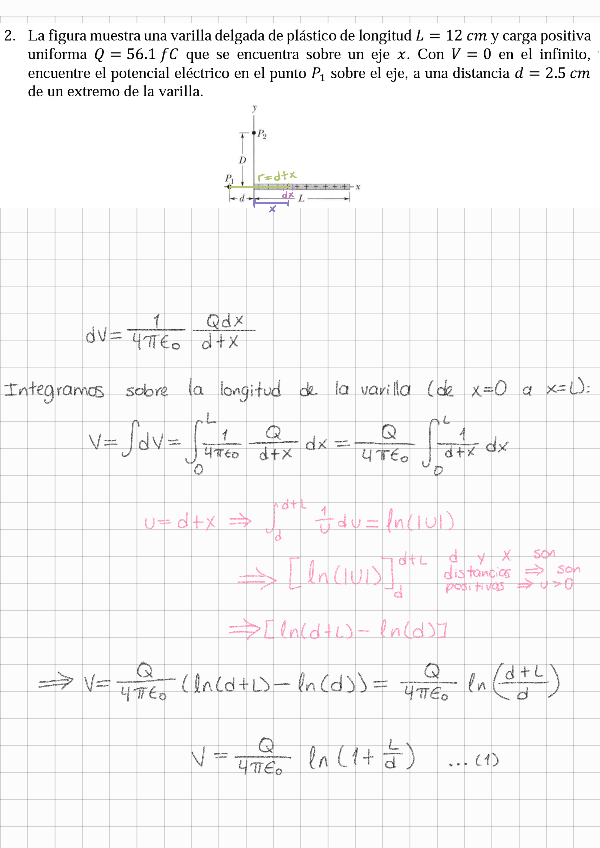 2. La figura muestra una varilla delgada de plástico de longitud L = 12 cm y carga positiva
uniforma Q = 56.1 fC que se encuentra sobre un eje x. Con V = 0 en el infinito,
encuentre el potencial eléctrico en el punto P₁ sobre el eje, a una distancia d = 2.5 cm
de un extremo de la varilla.
y
P₂
D
P₁ r=d+x x
d dx L
x
dV= 1/4πϵ₀ Qdx/d+x
Integramos sobre la longitud de la varilla (de x=0 a x=L):
V= ∫dV= ∫₀ᴸ 1/4πϵ₀ Q/d+x dx = Q/4πϵ₀ ∫₀ᴸ 1/d+x dx
u = d+x ⇒ ∫_d^{d+L} 1/U du = ln(|U|)
⇒ [ln(|U|)]_d^{d+L} d y x son
distancias ⇒ son
positivas ⇒ u>0
⇒ [ln(d+L) − ln(d)]
⇒ V= Q/4πϵ₀ (ln(d+L) − ln(d)) = Q/4πϵ₀ ln(d+L/d)
V = Q/4πϵ₀ ln(1+ L/d) ...(1)